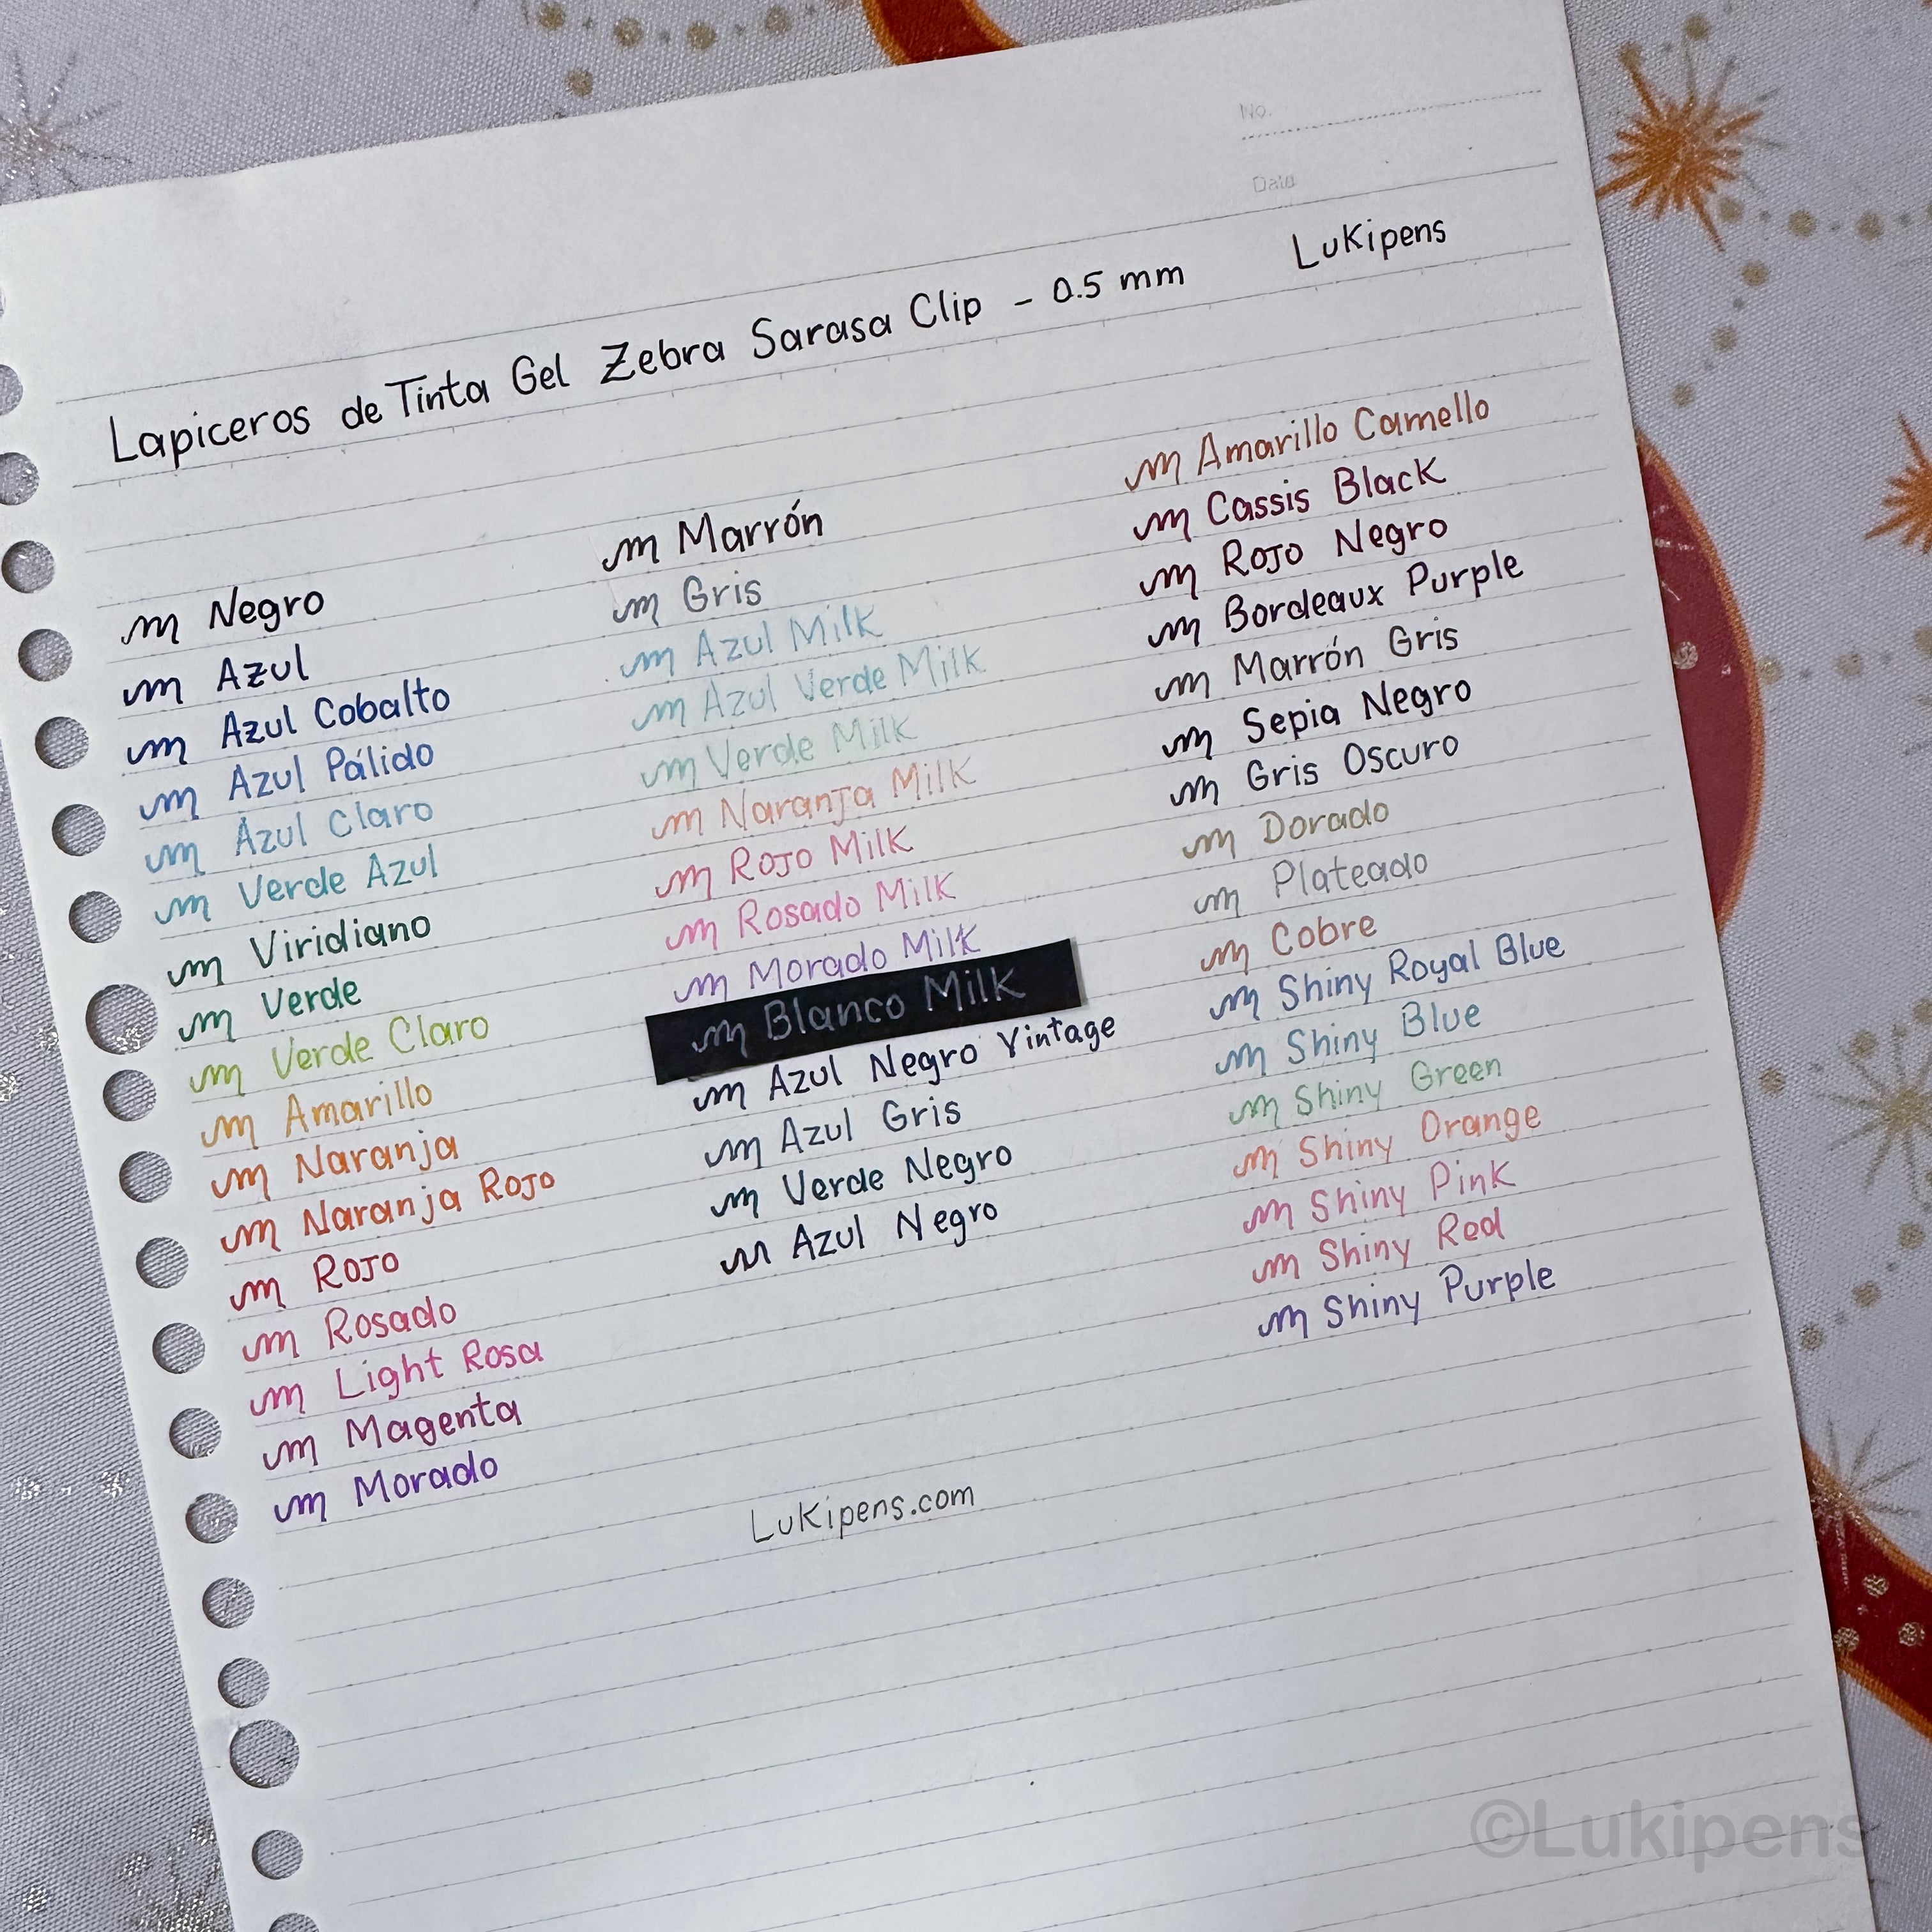 No.
Date
Lukipens
Lapiceros de Tinta Gel Zebra Sarasa Clip - 0.5 mm
Negro
Azul
Azul Cobalto
Azul Pálido
Azul Claro
Verde Azul
Viridiano
Verde
Verde Claro
Amarillo
Naranja
Naranja Rojo
Rojo
Rosado
Light Rosa
Magenta
Morado
Marrón
Gris
Azul Milk
Azul Verde Milk
Verde Milk
Naranja Milk
Rojo Milk
Rosado Milk
Morado Milk
Blanco Milk
Azul Negro Vintage
Azul Gris
Verde Negro
Azul Negro
Amarillo Camello
Cassis Black
Rojo Negro
Bordeaux Purple
Marrón Gris
Sepia Negro
Gris Oscuro
Dorado
Plateado
Cobre
Shiny Royal Blue
Shiny Blue
Shiny Green
Shiny Orange
Shiny Pink
Shiny Red
Shiny Purple
Lukipens.com
©Lukipens